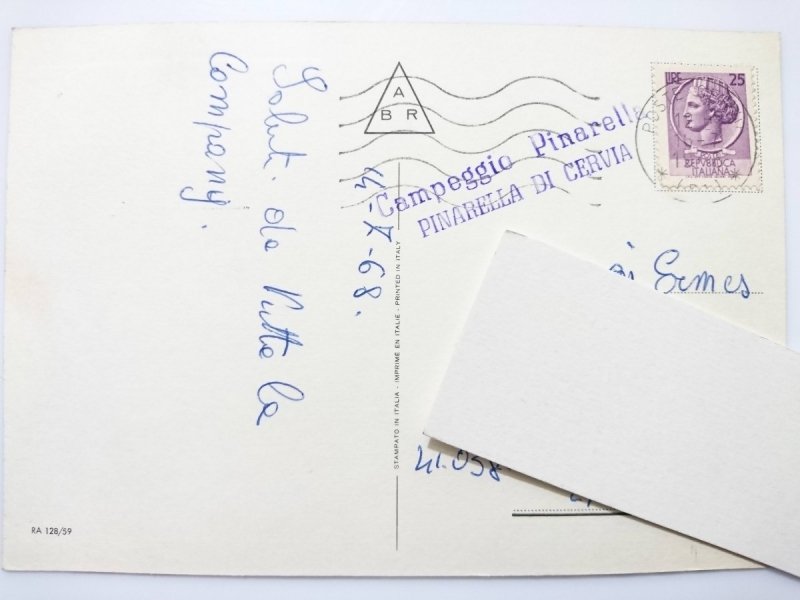 Saluti da tutta la
Company.
4-X-68.
A
B R
Campeggio Pinarella
PINARELLA DI CERVIA
LIRE 25
POSTE
REPVBBLICA
ITALIANA
Ermes
41.058
STAMPATO IN ITALIA - IMPRIMÉ EN ITALIE - PRINTED IN ITALY
RA 128/59